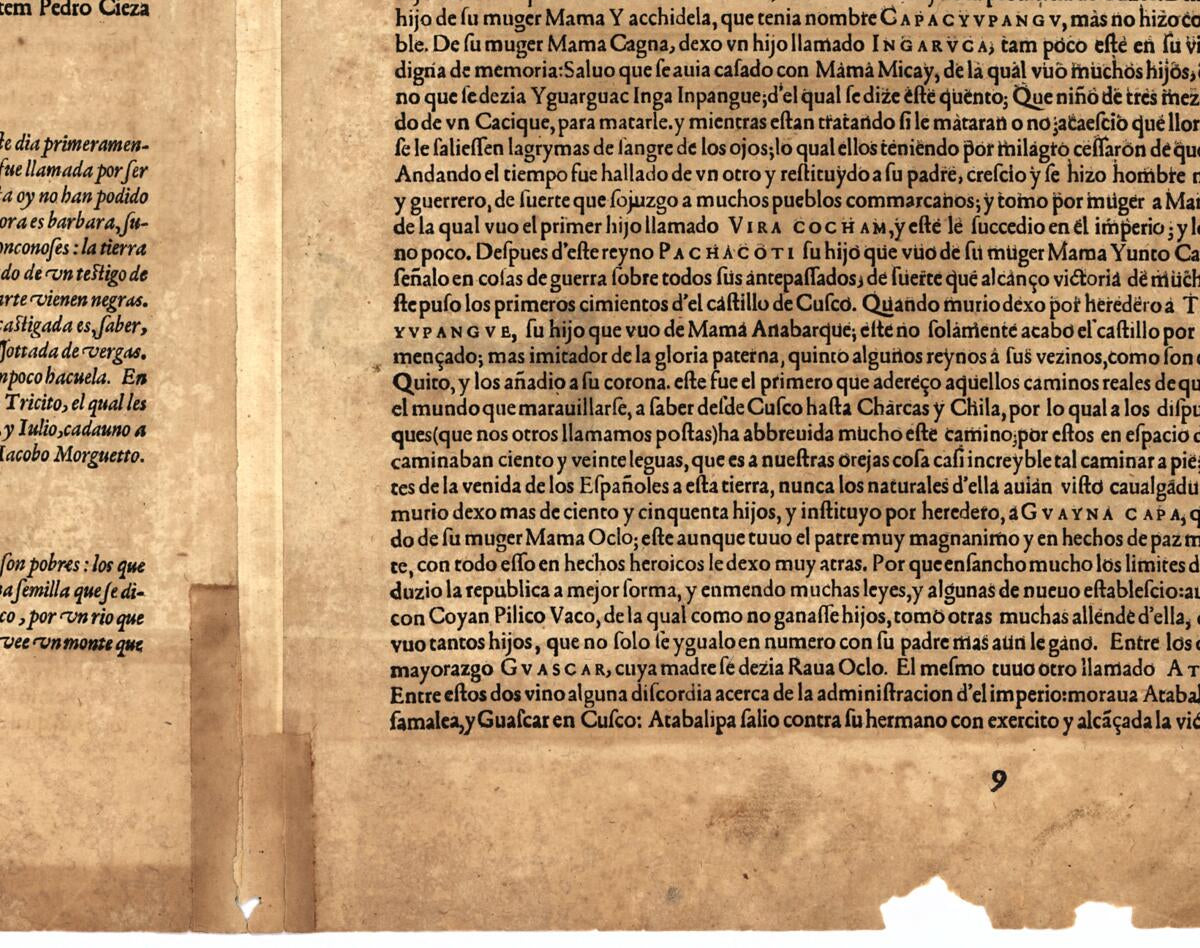 tem Pedro Cieza
ſte dia primeramen-
fue llamada por ſer
ta oy no han podido
ora es barbara, ſu-
onconoſes : la tierra
do de vn teſtigo de
arte vienen negras.
caſtigada es, ſaber,
ſſottada de vergas.
mpoco hacuela. En
Tricito, el qual les
, y Iulio, cadauno a
Iacobo Morguetto.
ſon pobres : los que
na ſemilla que ſe di-
co , por vn rio que
vee vn monte que
hijo de ſu muger Mama Y acchidela, que tenia nombre CAPACYVPANGV, màs no hizo co
ble. De ſu muger Mama Cagna, dexo vn hijo llamado INGARVCA; tam poco eſtè en ſu vi
digna de memoria: Saluo que ſe auia caſado con Màmà Micay, de la quàl vuo muchos hijos,
no que ſe dezia Yguarguac Inga Inpangue; d'el qual ſe dize èſtè quènto; Que niñò de tres mez
do de vn Cacique, para matarle. y mientras eſtan tratando ſi le màtaran o no; acaeſciò què llor
ſe le ſalieſſen lagrymas de ſangre de los ojos; lo qual ellos teniendo pòr milàgrò ceſſaròn de què
Andando el tiempo fue hallado de vn otro y reſtituydo a ſu padrè, creſcio y ſe hizo hombre
y guerrero, de ſuerte que ſojuzgo a muchos pueblos commarcanos; y tomo por mùger a Mam
de la qual vuo el primer hijo llamado VIRA COCHAM, y eſtè le ſuccedio en èl impèrio; y
no poco. Deſpues d'eſte reyno PACHACOTI ſu hijo què vùo de ſu mùger Mama Yunto Ca
ſeñalo en coſas de guerra ſobre todos ſùs àntepaſſados; de ſuèrte què alcànço victorià dè mùch
ſte puſo los primeros cimientos d'el càſtillo de Cuſcò. Quàndo murio dèxo pòr herèdèro à T
YVPANGVE, ſu hijo que vuo de Mamà Anabarquè; èſte no ſolàmènte acabo el caſtillo por
mençado; mas imitador de la gloria paterna, quinto algùños reynos à ſùs vezinos, como ſon
Quito, y los añadio a ſu corona. eſte fue el primero que adereço aquellos caminos reales de qu
el mundo que marauillarſe, a ſaber deſde Cuſco haſta Chàrcas y Chila, por lo qual a los diſpu
ques(que nos otros llamamos poſtas)ha abbreuida mùcho eſtè càmino; por eſtos en eſpacio d
caminaban ciento y veinte leguas, que es a nueſtras òrejas coſa caſi increyble tal caminar a piè;
tes de la venida de los Eſpañoles a eſta tierra, nunca los naturalès d'ella auiàn viſtò caualgàdu
murio dexo mas de ciento y cinquenta hijos, y inſtituyo por heredero, à GVAYNA CAPA, q
do de ſu muger Mama Oclo; eſte aunque tuuo el patre muy magnanimo y en hechos de paz m
te, con todo eſſo en hechos heroicos le dexo muy atras. Por que enſancho mucho lòs limites d
duzio la republica a mejor forma, y enmendo muchas leyes, y algunas de nueuo eſtableſcio: au
con Coyan Pilico Vaco, de la qual como no ganaſſe hijos, tomò otras muchas allènde d'ella,
vuo tantos hijos, que no ſolo ſe ygualo en numero con ſu padre mas aùn le gano. Entre los
mayorazgo GVASCAR, cuya madre ſe dezia Raua Oclo. El meſmo tuuo otro llamado AT
Entre eſtos dos vino alguna diſcordia acerca de la adminiſtracion d'el imperio: moraua Atabal
ſamalea, y Guaſcar en Cuſco: Atabalipa ſalio contra ſu hermano con exercito y alcãçada la vic
9